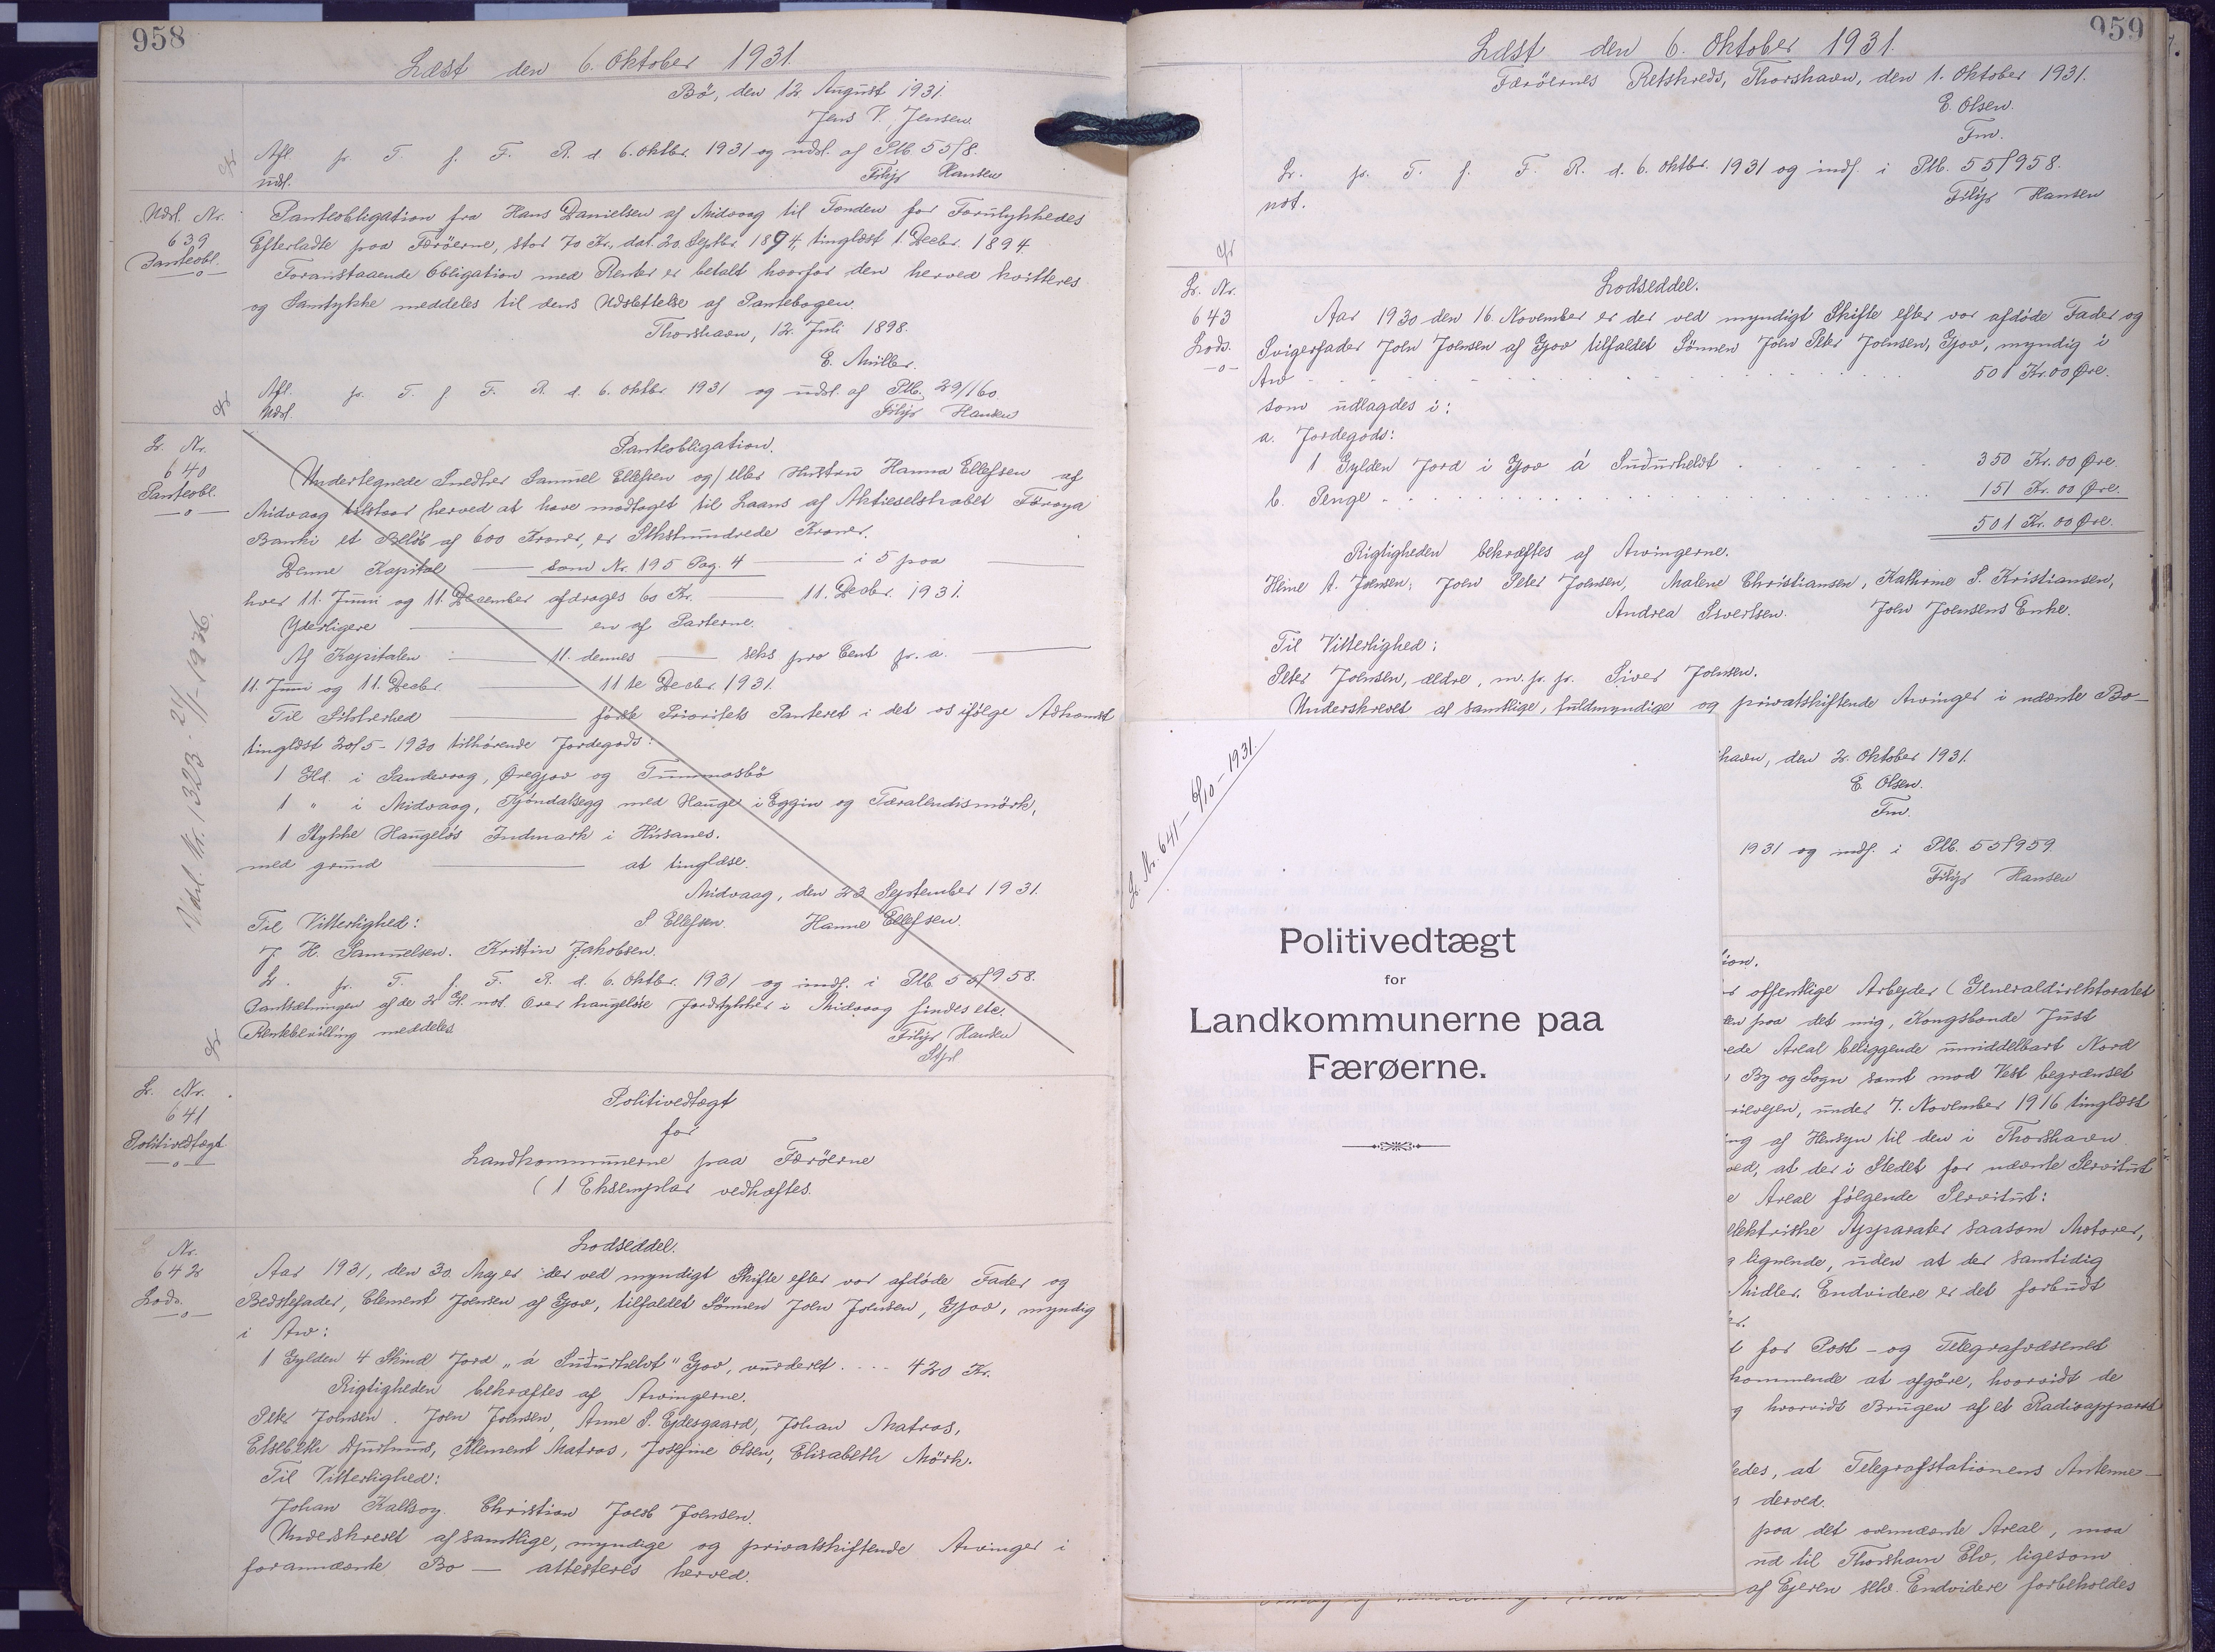 958
Læst den 6. Oktober 1931.
Bö, den 12 August 1931.
Jens V. Jensen.
Afl. p. T. f. F. R. d 6. Oktbr. 1931 og udsl. af Ptb. 55/8.
udsl. Filip Hansen
Udsl. Nr. 639 Panteobl.
Panteobligation fra Hans Danielsen af Midvaag til Fonden for Forulykkedes
Efterladte paa Færöerne, stor 70 Kr., dat. 20 Septbr. 1894, tinglæst 1. Decbr. 1894.
Foranstaaende Obligation med Renter er betalt hvorfor den herved kvitteres
og Samtykke meddeles til dens Udslettelse af Pantebogen.
Thorshavn, 12. Juli 1898.
E. Müller.
Afl. p. T. f F. R. d. 6. Oktbr. 1931 og udsl. af Ptb. 29/160
Udsl. Filip Hansen
L. Nr. 640 Panteobl.
Panteobligation.
Undertegnede Snedker Samuel Ellefsen og/eller Hustru Hanna Ellefsen af
Midvaag tilstaar herved at have modtaget til Laans af Aktieselskabet Föroya
Banki et Beløb af 600 Kroner, er Sekshundrede Kroner.
Denne Kapital — som Nr. 195 Pag. 4 — i 5 paa —
hver 11. Juni og 11. December afdrages 60 Kr. — 11. Decbr. 1931.
Yderligere — en af Parterne.
Af Kapitalen — 11. dennes — seks pro Cent p. a. —
11. Juni og 11. Decbr. — 11te Decbr. 1931.
Til Sikkerhed — förste Prioritets Panteret i det os ifølge Adkomst
tinglæst 20/5-1930 tilhørende Jordegods:
1 Hd. i Sandevaag, Øregjov og Tummasbö
1 " i Midvaag, Kjöndalsegg med Hauge i Eggin og Tæralendismörk,
1 Stykke Haugeløs Indmark i Húsanes.
med grund — at tinglæse.
Midvaag, den 23 September 1931.
Til Vitterlighed: S Ellefsen. Hanne Ellefsen.
J. H. Samuelsen. Kristin Jakobsen.
L. p. T. f. F. R. d. 6. Oktbr. 1931 og indf. i Ptb 55/958.
Pantsætningen af de 2 not. haugeløse Jordstykker i Midvaag findes etc.
Rentebevilling meddeles Filip Hansen
Stpl
Udsl. Nr. 1323 - 21/1-1936.
L. Nr. 641 Politivedtægt
Politivedtægt
for
Landkommunerne paa Færöerne
( 1 Eksemplar vedhæftes.
Nr. 642 Lods.
Lodseddel.
Aar 1931, den 30. Maj er der ved myndigt Skifte efter vor afdöde Fader og
Bedstefader, Clement Joensen af Gjov, tilfaldet Sönnen Joen Joensen, Gjov, myndig
i Arv:
1 Gylden 4 Skind Jord „á Suðurhelvt" Gjov, vurderet .... 420 Kr.
Rigtigheden bekræftes af Arvingerne.
Peter Joensen. Joen Joensen, Anne S. Ejdesgaard, Johan Matras,
Elsebeth Djurhuus, Clement Matras, Josefine Olsen, Elisabeth Mörk.
Til Vitterlighed:
Johan Kallsoy. Christian Jacob Joensen.
Underskrevet af samtlige, myndige og privatskiftende Arvinger i
forannævnte Bo — attesteres herved.
959
Læst den 6. Oktober 1931.
Færöernes Retskreds, Thorshavn, den 1. Oktober 1931.
E. Olsen.
Fm.
L. p. T. f. F. R. d. 6. Oktbr. 1931 og indf. i Ptb. 55/958.
not. Filip Hansen
L. Nr. 643 Lods.
Lodseddel.
Aar 1930 den 16. November er der ved myndigt Skifte efter vor afdöde Fader og
Svigerfader Joen Joensen af Gjov tilfaldet Sönnen Joen Peter Joensen, Gjov, myndig i
Arv 501 Kr. 00 Øre.
som udlagdes i:
a. Jordegods:
1 Gylden Jord i Gjov á Suðurhelvt 350 Kr. 00 Øre.
b. Penge 151 Kr. 00 Øre.
501 Kr. 00 Øre.
Rigtigheden bekræftes af Arvingerne.
Heine A. Joensen, Joen Peter Joensen, Malene Christiansen, Kathrine S. Kristiansen,
Andrea Sivertsen. Joen Joensens Enke.
Til Vitterlighed:
Peter Joensen, ældre, m. p. p. Siver Joensen.
Underskrevet af samtlige, fuldmyndige og privatskiftende Arvinger i nævnte Bo —
havn, den 2. Oktober 1931.
E. Olsen.
Fm.
1931 og indf. i Ptb. 55/959
Filip Hansen
L. Nr. 641 - 6/10-1931.
Politivedtægt
for
Landkommunerne paa
Færøerne.
ion.
offentlige Arbejder (Generaldirektoratet
paa det mig, Kongsbonde Just
ede Areal beliggende umiddelbart Nord
By og Sogn samt mod Vest begrænset
vejen, under 7. November 1916 tinglæst
ng af Hensyn til den i Thorshavn
ved, at der i Stedet for nævnte Servitut
e Areal følgende Servitut:
elektriske Apparater saasom Motorer,
lignende, uden at der samtidig
Midler. Endvidere er det forbudt
er.
t for Post- og Telegrafvæsenet
kommende at afgöre, hvorvidt de
g hvorvidt Brugen af et Radioapparat
edes, at Telegrafstationens Antenne-
derved.
paa det ovennævnte Areal, maa
ud til Thorshavn Elv, ligesom
af Ejeren selv. Endvidere forbeholdes